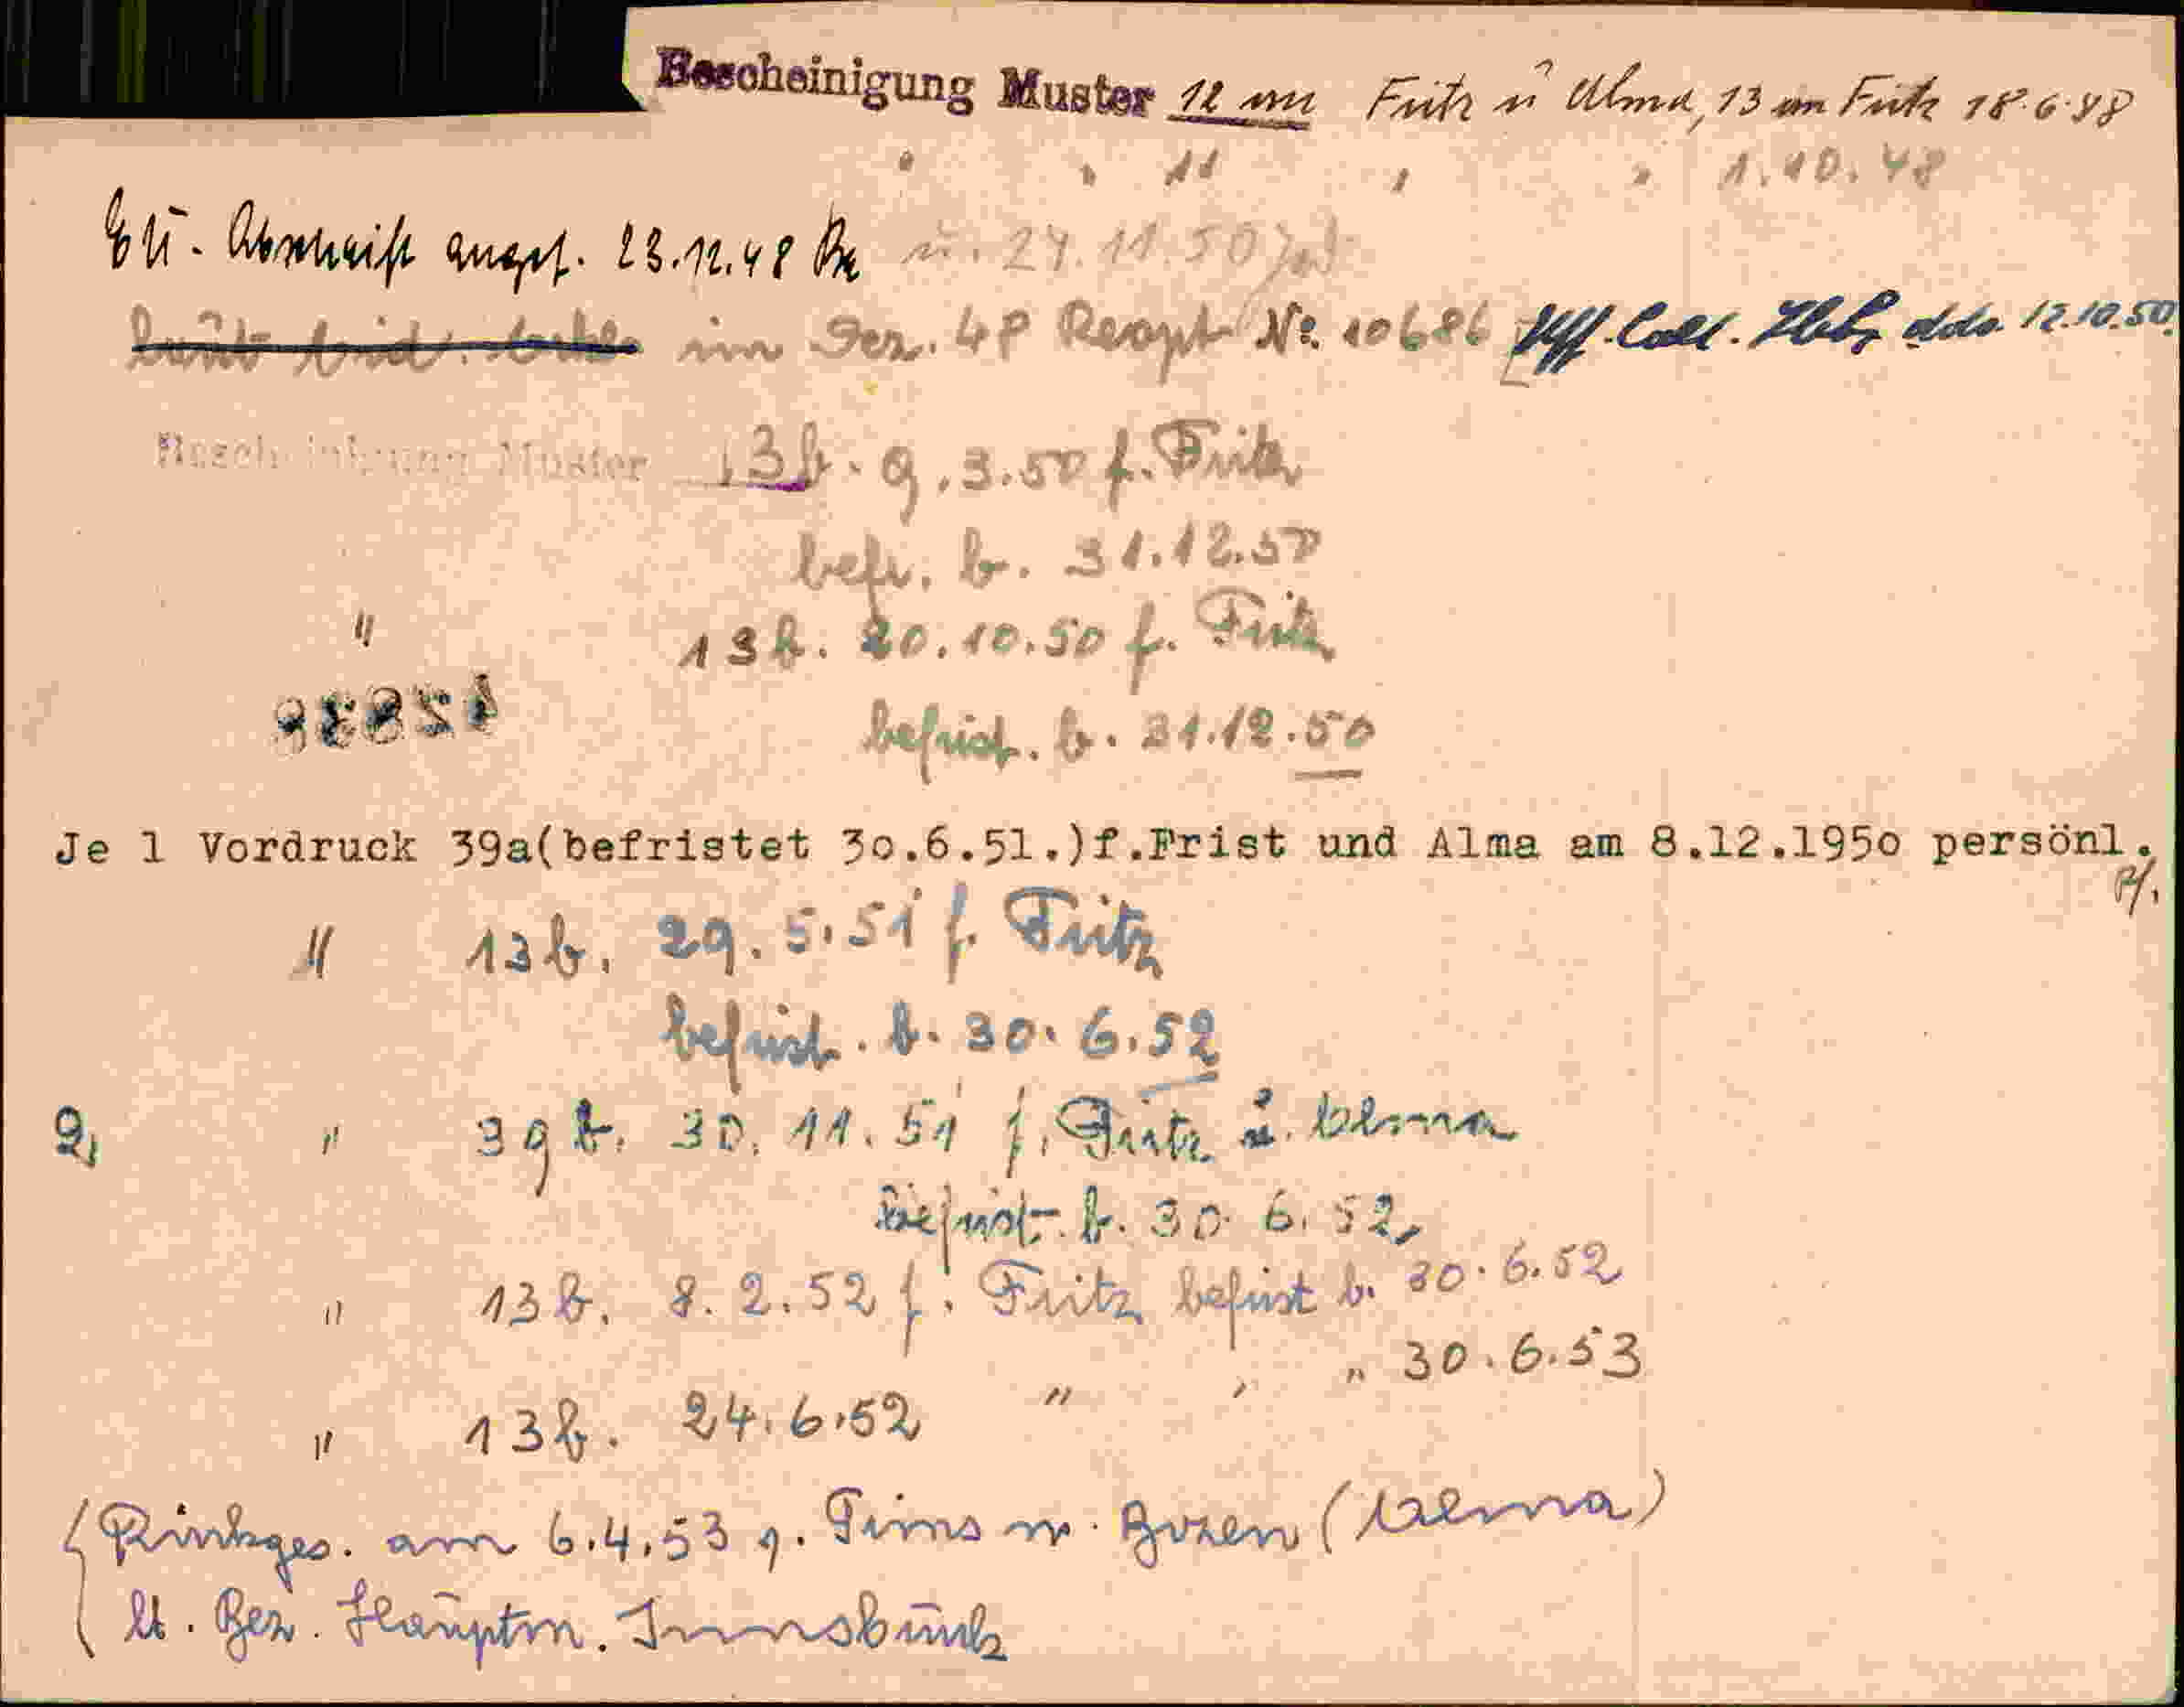 Bescheinigung Muster 12 am Fritz u Alma, 13 am Fritz 18.6.48
" " 11 " " 1.10.48
EU. Abschrift angef. 23.12.48 u. 24.11.50
im Dez. 48 Reopt No. 10686 ddo. 12.10.50.
Bescheinigung Muster 13b. 9.3.50 f. Fritz
befr. b. 31.12.50
" 13b. 20.10.50 f. Fritz
befrist. b. 31.12.50
Je 1 Vordruck 39a(befristet 3o.6.51.)f.Frist und Alma am 8.12.195o persönl.
" 13b. 29.5.51 f. Fritz
befrist. b. 30.6.52
2, " 39b. 30.11.51 f. Fritz u. Alma
befrist. b. 30.6.52,
" 13b. 8.2.52 f. Fritz befrist b. 30.6.52
" 13b. 24.6.52 " " " 30.6.53
Rückges. am 6.4.53 n. Bozen (Alma)
lt. Bez. Hauptm. Innsbruck